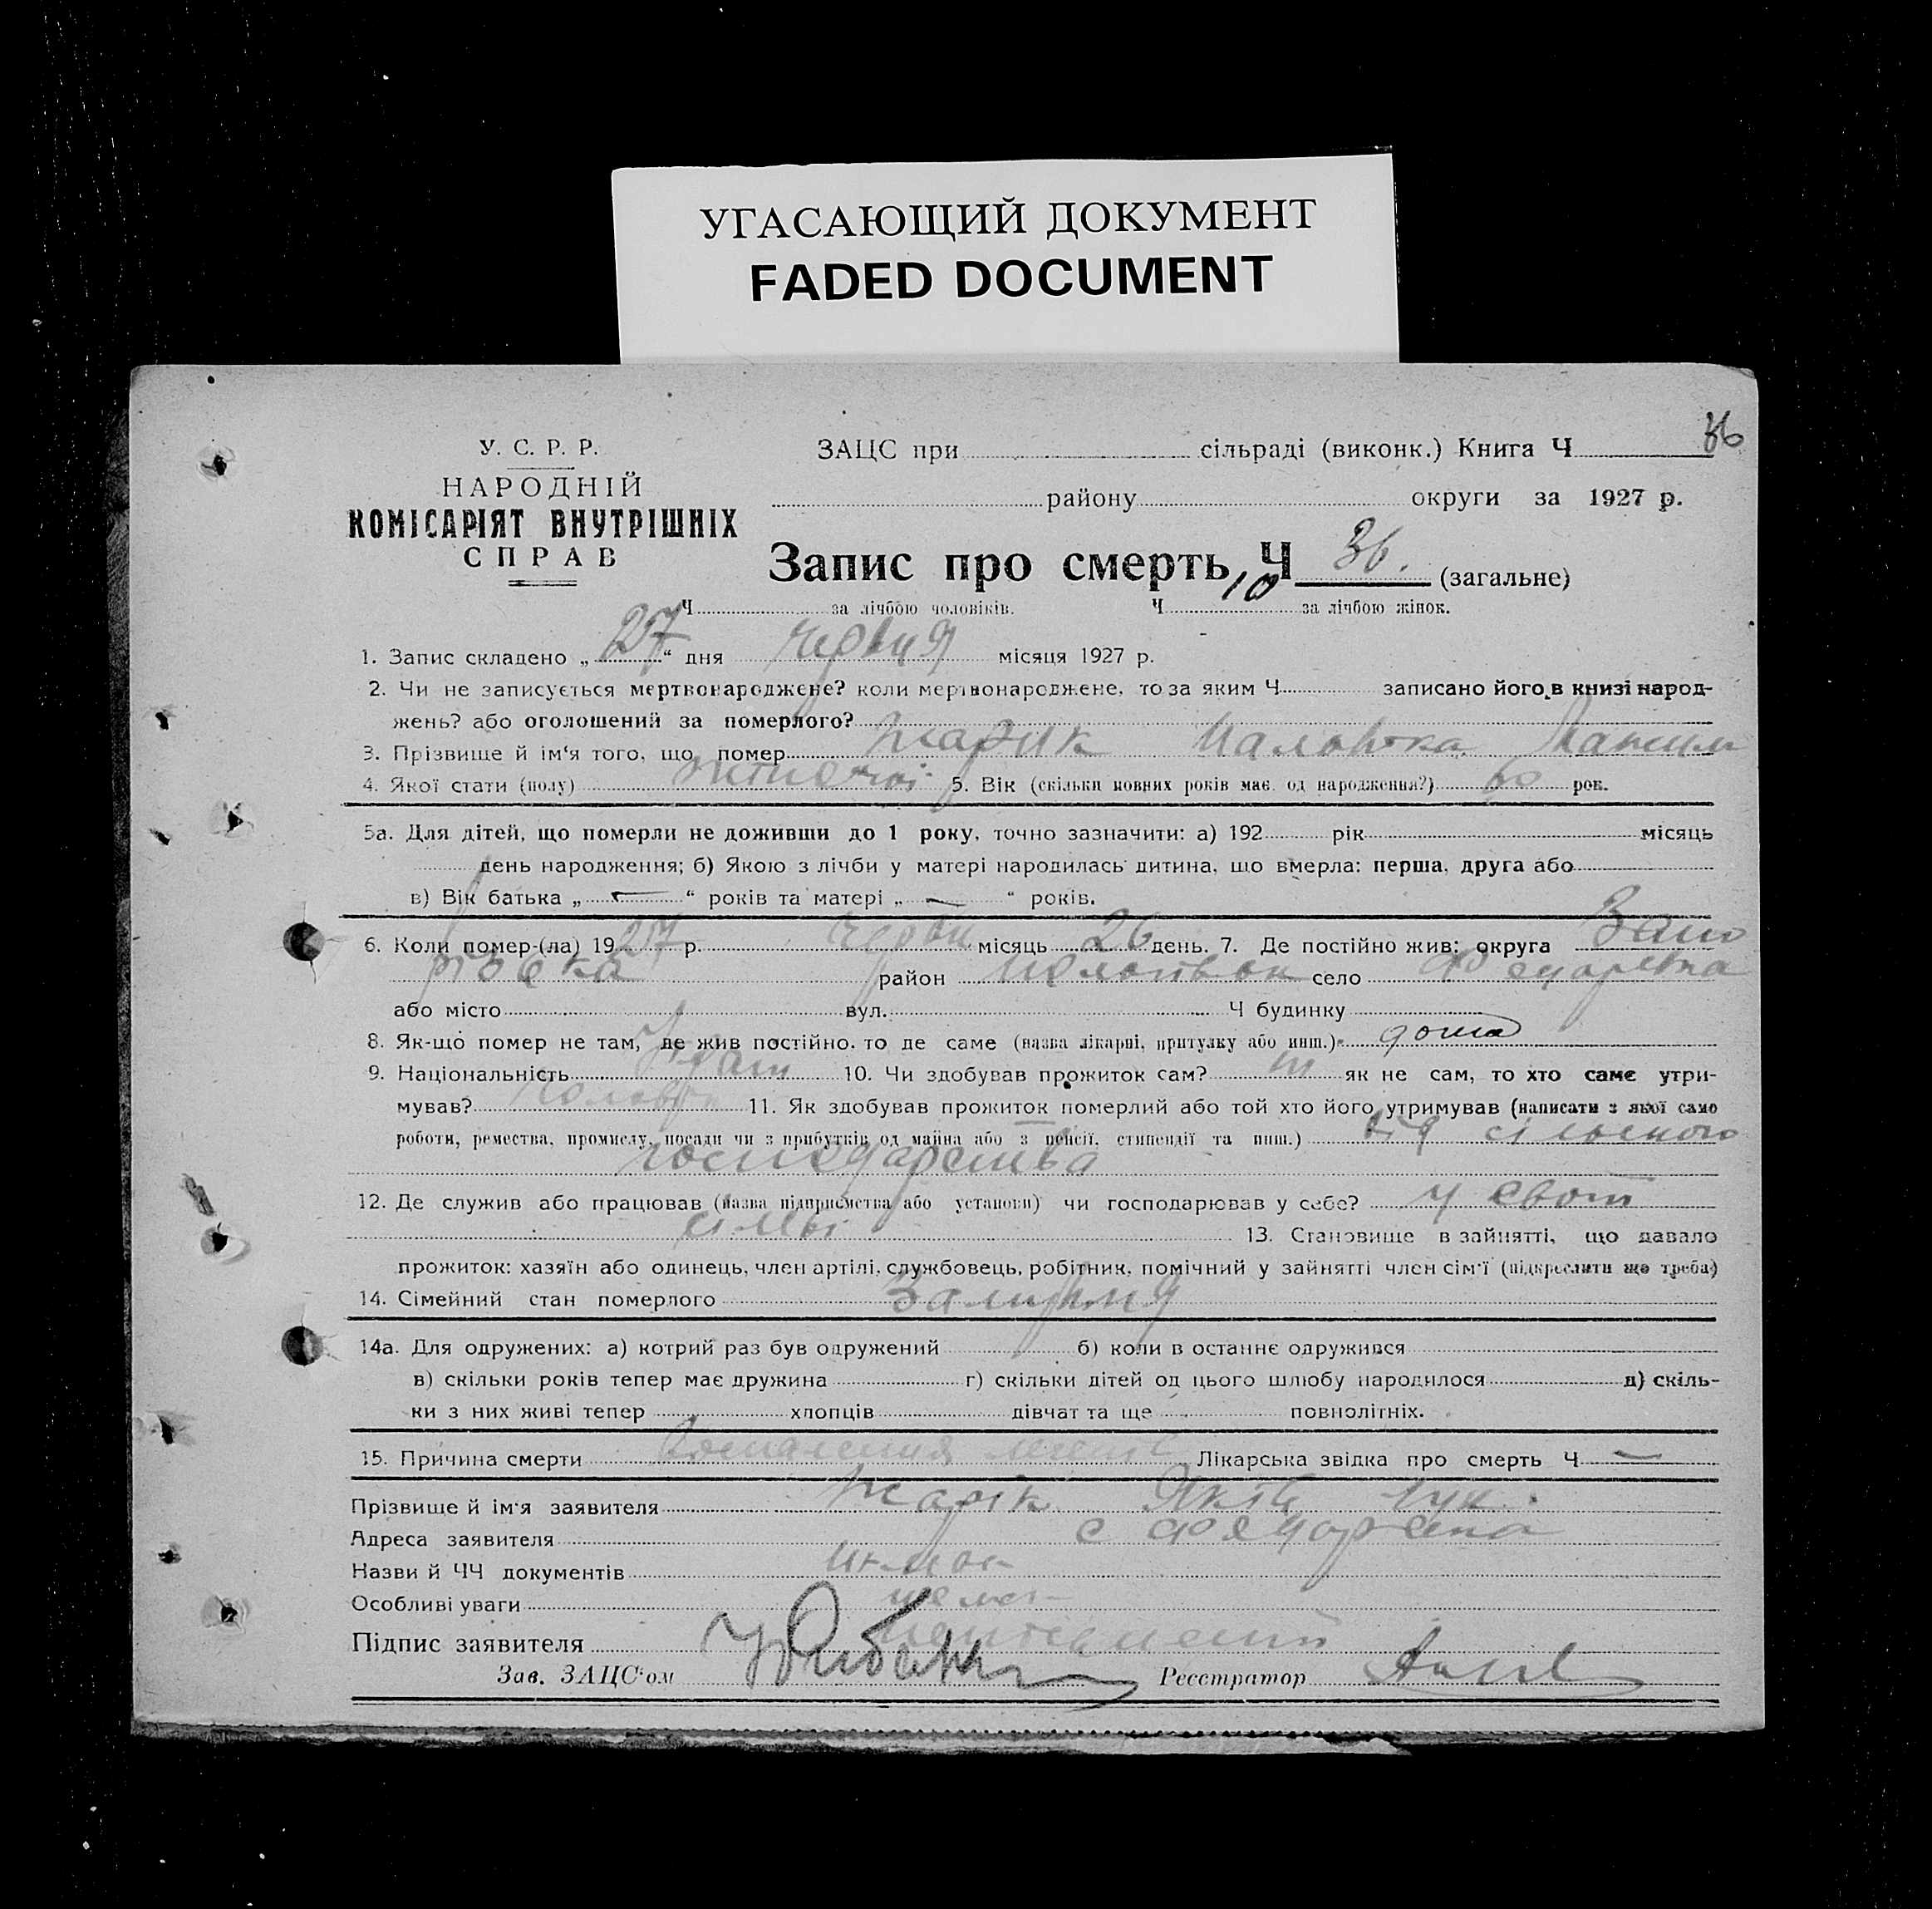 УГАСАЮЩИЙ ДОКУМЕНТ
FADED DOCUMENT
36
У. С. Р. Р.
НАРОДНІЙ
КОМІСАРІЯТ ВНУТРІШНІХ
СПРАВ
ЗАЦС при сільраді (виконк.) Книга Ч
району округи за 1927 р.
Запис про смерть, Ч 36. (загальне)
10
Ч за лічбою чоловіків. Ч за лічбою жінок.
1. Запис складено „27“ дня червня місяця 1927 р.
2. Чи не записується мертвонароджене? коли мертвонароджене, то за яким Ч записано його в книзі народ-
жень? або оголошений за померлого?
3. Прізвище й ім'я того, що помер Жарик
4. Якої стати (полу) жіночої 5. Вік (скільки повних років має од народження?) 60 рок.
5а. Для дітей, що померли не доживши до 1 року, точно зазначити: а) 192 рік місяць
день народження; б) Якою з лічби у матері народилась дитина, що вмерла: перша, друга або
в) Вік батька „ — “ років та матері „ — “ років.
6. Коли помер-(ла) 1927 р. червн місяць 26 день. 7. Де постійно жив: округа Запо
різька район село
або місто вул. Ч будинку
8. Як-що помер не там, де жив постійно, то де саме (назва лікарні, притулку або инш.) дома
9. Національність 10. Чи здобував прожиток сам? ні як не сам, то хто саме утри-
мував? 11. Як здобував прожиток померлий або той хто його утримував (написати з якої само
роботи, ремества, промислу, посади чи з прибутків од майна або з пенсії, стипендії та инш.) від сільського
господарства
12. Де служив або працював (назва підприємства або установи) чи господарював у себе? у своїй
сімьї 13. Становище в зайнятті, що давало
прожиток: хазяїн або одинець, член артілі, службовець, робітник, помічний у зайнятті член сім'ї (підкреслити що треба)
14. Сімейний стан померлого
14а. Для одружених: а) котрий раз був одружений б) коли в останнє одружився
в) скільки років тепер має дружина г) скільки дітей од цього шлюбу народилося д) скіль-
ки з них живі тепер хлопців дівчат та ще повнолітніх.
15. Причина смерти Лікарська звідка про смерть Ч —
Прізвище й ім'я заявителя Жарік
Адреса заявителя с
Назви й ЧЧ документів
Особливі уваги
Підпис заявителя
Зав. ЗАЦС'ом Реєстратор